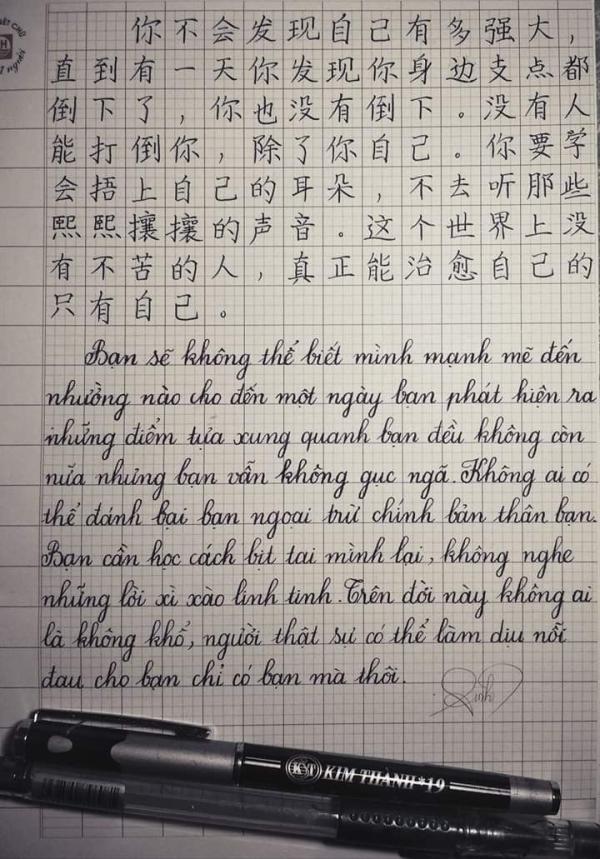 你不会发现自己有多强大，
直到有一天你发现你身边支点都
倒下了，你也没有倒下。没有人
能打倒你，除了你自己。你要学
会捂上自己的耳朵，不去听那些
熙熙攘攘的声音。这个世界上没
有不苦的人，真正能治愈自己的
只有自己。
Bạn sẽ không thể biết mình mạnh mẽ đến
nhường nào cho đến một ngày bạn phát hiện ra
những điểm tựa xung quanh bạn đều không còn
nữa nhưng bạn vẫn không gục ngã. Không ai có
thể đánh bại bạn ngoại trừ chính bản thân bạn.
Bạn cần học cách bịt tai mình lại, không nghe
những lời xì xào linh tinh. Trên đời này không ai
là không khổ, người thật sự có thể làm dịu nỗi
đau cho bạn chỉ có bạn mà thôi.
KT KIM THÀNH*19